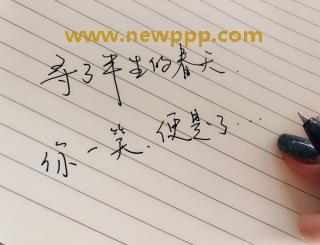 www.newppp.com
寻了半生的春天.
你一笑.便是了...